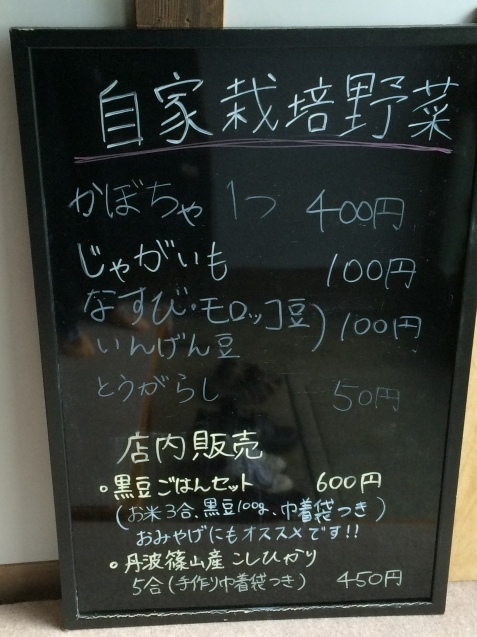 自家栽培野菜
かぼちゃ 1つ 400円
じゃがいも 100円
なすび・モロッコ豆
いんげん豆 ) 100円
とうがらし 50円
店内販売
・黒豆ごはんセット 600円
(お米3合、黒豆100g、巾着袋つき)
おみやげにもオススメです!!
・丹波篠山産こしひかり
5合(手作り巾着袋つき) 450円